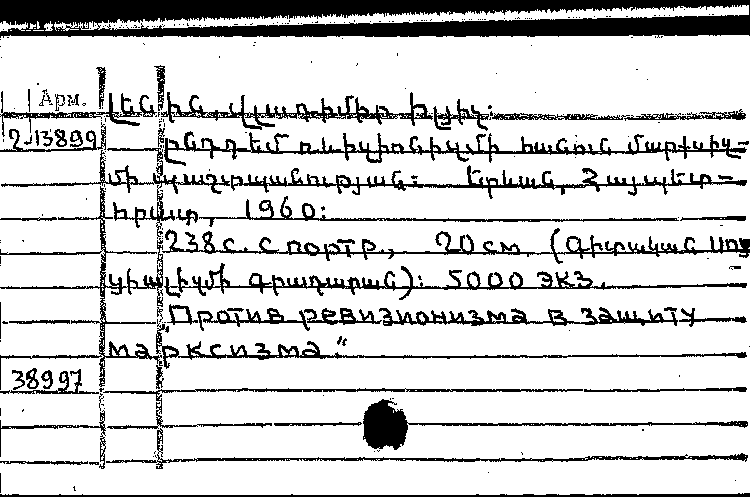 Арм.
ԼԵՆԻՆ, Վլադիմիր Իլյիչ:
2-13899
Ընդդեմ ռևիզիոնիզմի հանուն մարքսիզ-
մի պաշտպանության: Երևան, Հայպետ-
հրատ, 1960:
238 с. с портр., 20 см. (Գիտական սոց
իալիզմի գրադարան): 5000 экз.
"Против ревизионизма в защиту
марксизма."
38997